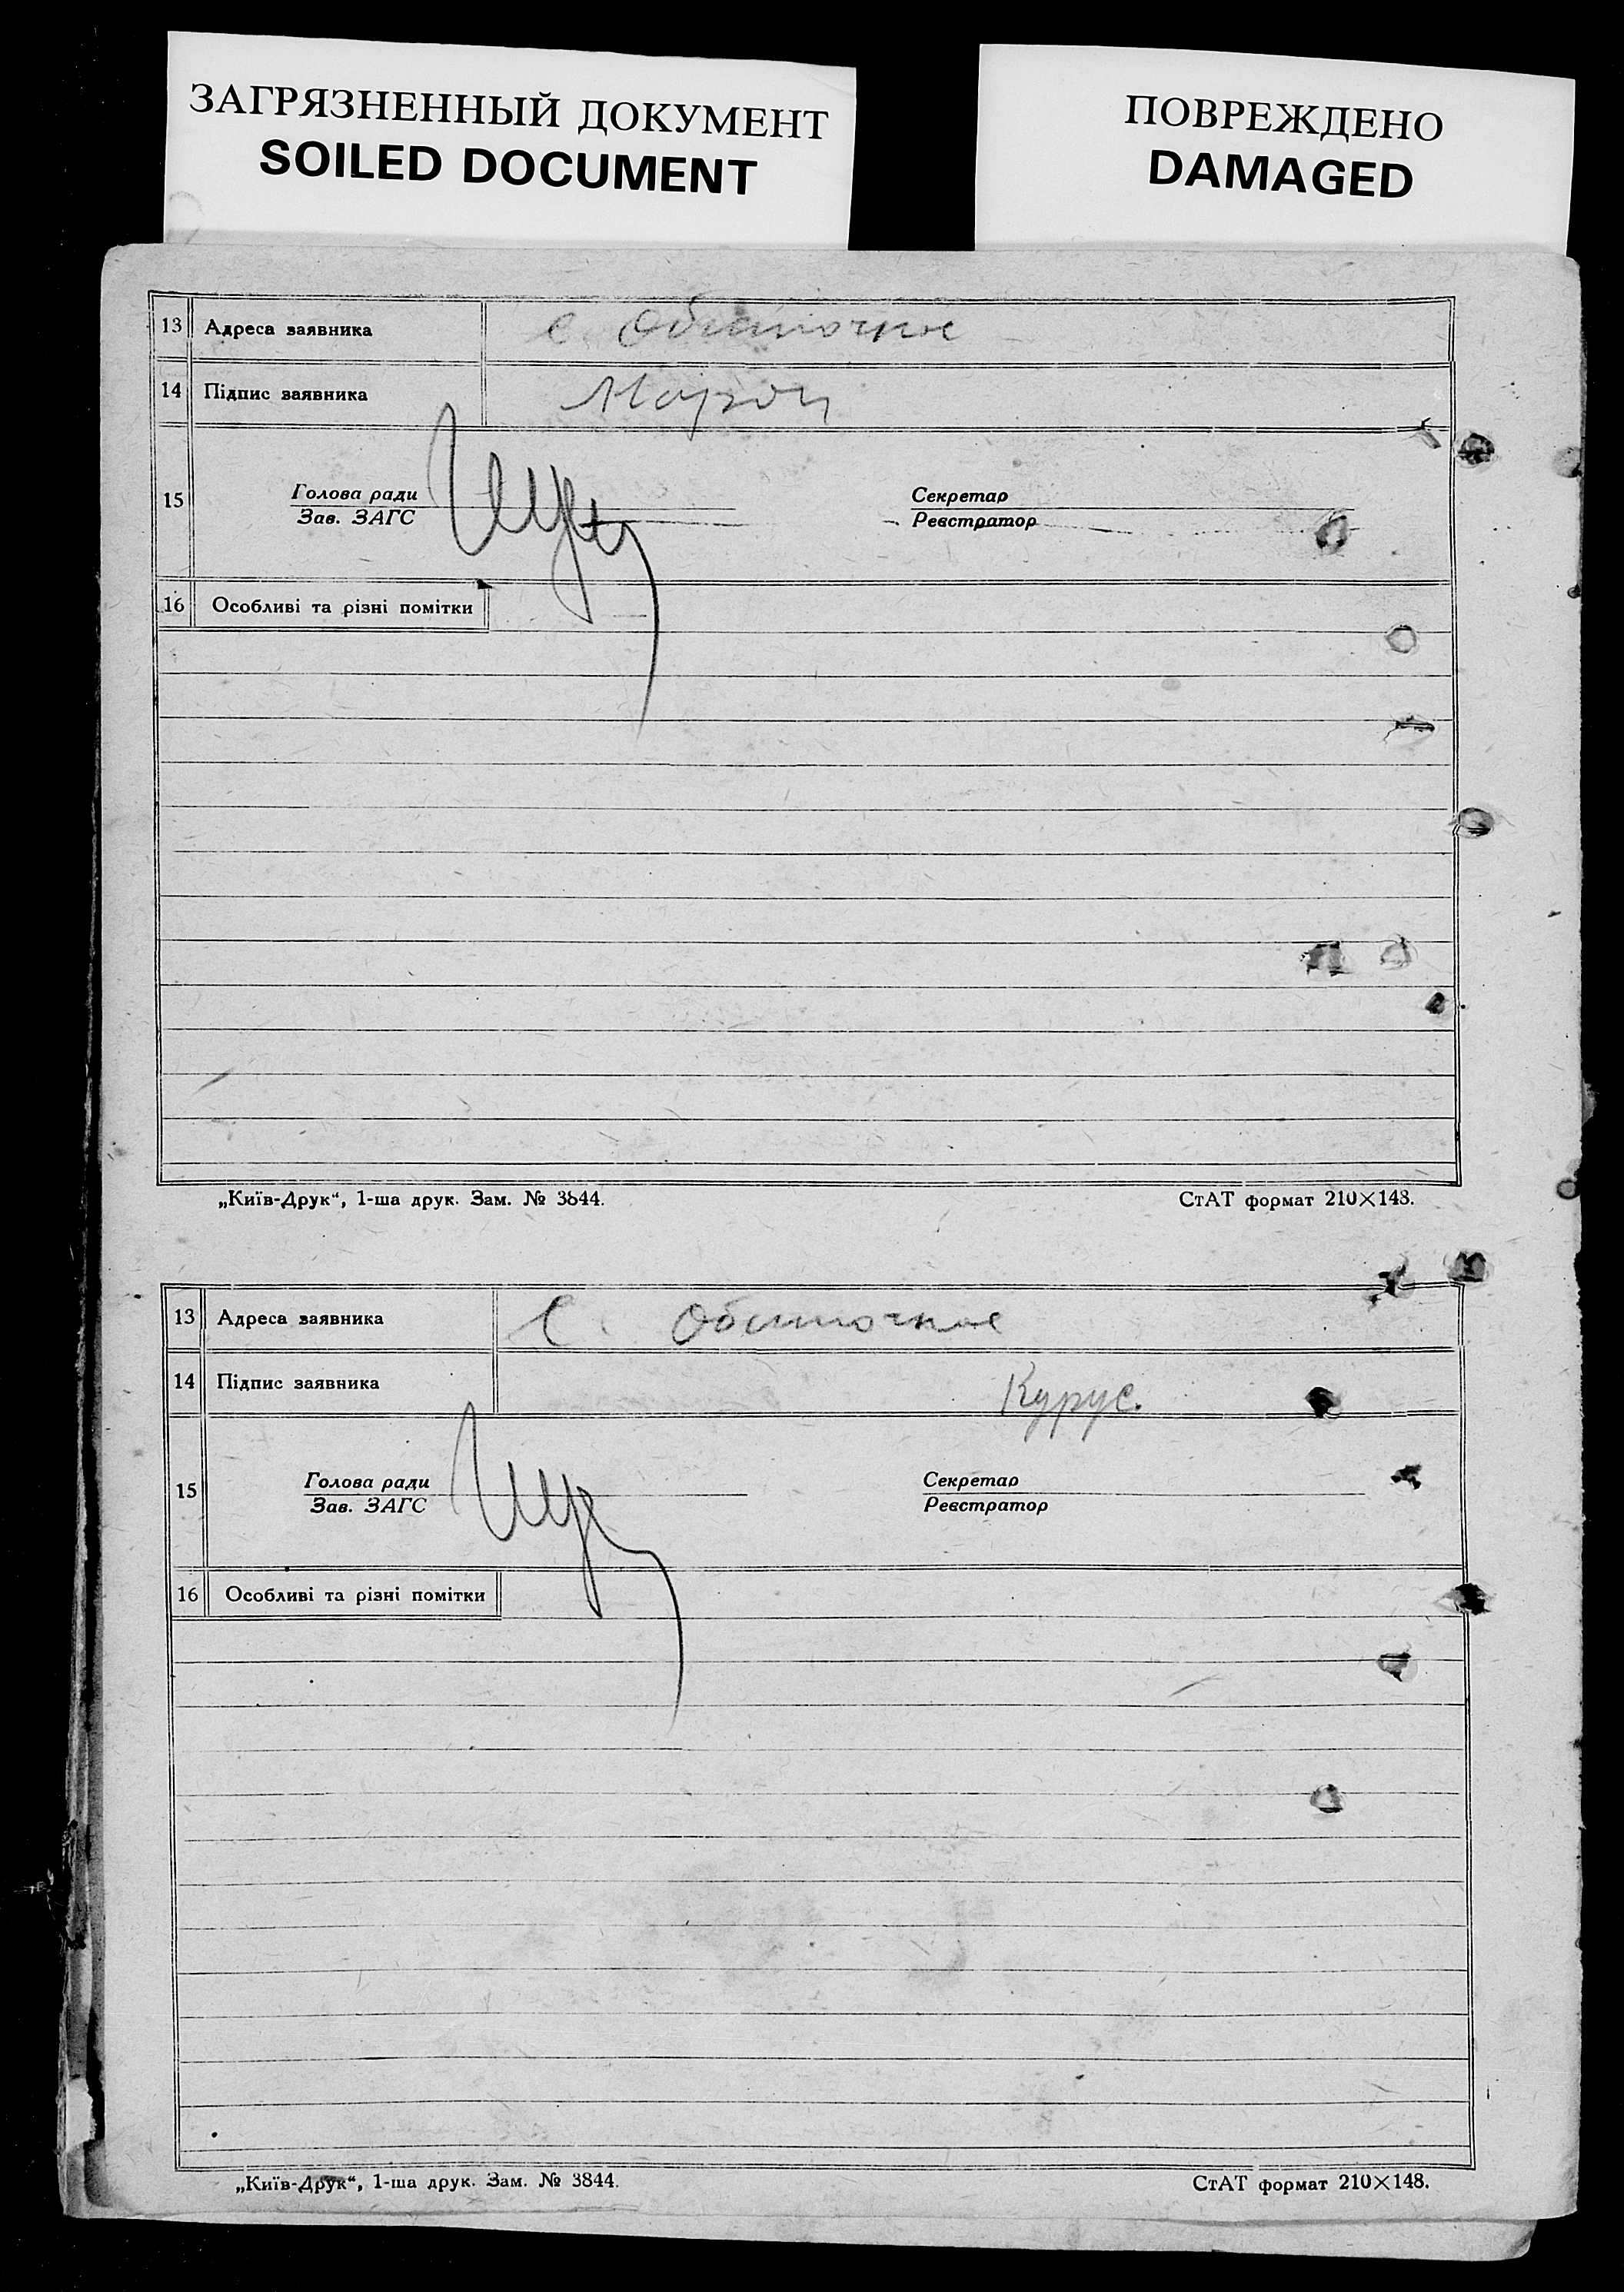 ЗАГРЯЗНЕННЫЙ ДОКУМЕНТ
SOILED DOCUMENT
ПОВРЕЖДЕНО
DAMAGED
13 Адреса заявника с. Обиточное
14 Підпис заявника
15 Голова ради Секретар
Зав. ЗАГС Реєстратор
16 Особливі та різні помітки
„Київ-Друк“, 1-ша друк. Зам. № 3844. СтАТ формат 210×148.
13 Адреса заявника С. Обиточное
14 Підпис заявника Курус.
15 Голова ради Секретар
Зав. ЗАГС Реєстратор
16 Особливі та різні помітки
„Київ-Друк“, 1-ша друк. Зам. № 3844. СтАТ формат 210×148.